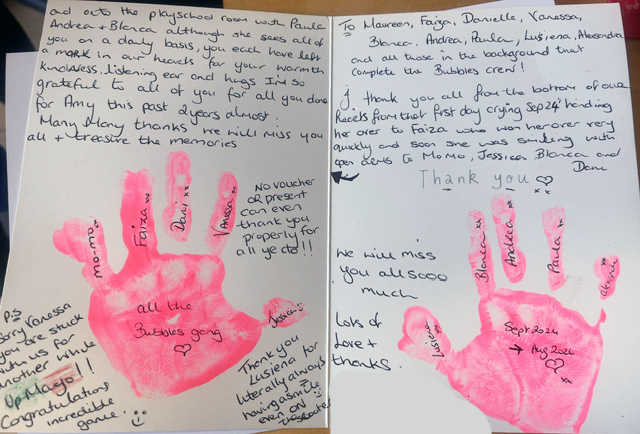 To Maureen, Faiza, Danielle, Vanessa,
Blanca, Andrea, Paula, Lusiena, Alessandra
and all those in the background that
complete the Bubbles crew!
I thank you all from the bottom of our
heels from that first day crying Sep 24' handing
her over to Faiza who won her over very
quickly and soon she was smiling with
open arms to Momo, Jessica, Blanca and
Dani
Thank you
We will miss
you all sooo
much
Lots of
Love +
thanks.
Blanca xx
Andrea xx
Paula
Lusiena
Sept 2024
→ Aug 2026
xx
and onto the playschool room with Paula
Andrea + Blanca although she sees all of
you on a daily basis, you each have left
a mark in our hearts for your warmth
kindness, listening ear and hugs I'm so
grateful to all of you for all you done
for Amy this past 2 years almost.
Many Many thanks we will miss you
all + treasure the memories
No voucher
or present
can even
thank you
properly for
all ye do!!
mo-mo
Faiza xx
Dani xx
Vanessa
Jessica
all the
Bubbles gang
P.S
Sorry Vanessa
you are stuck
with us for
another whole
Up Mayo!!
Congratulations
incredible
game.
Thank you
Lusiena for
literally always
having a smile
even on